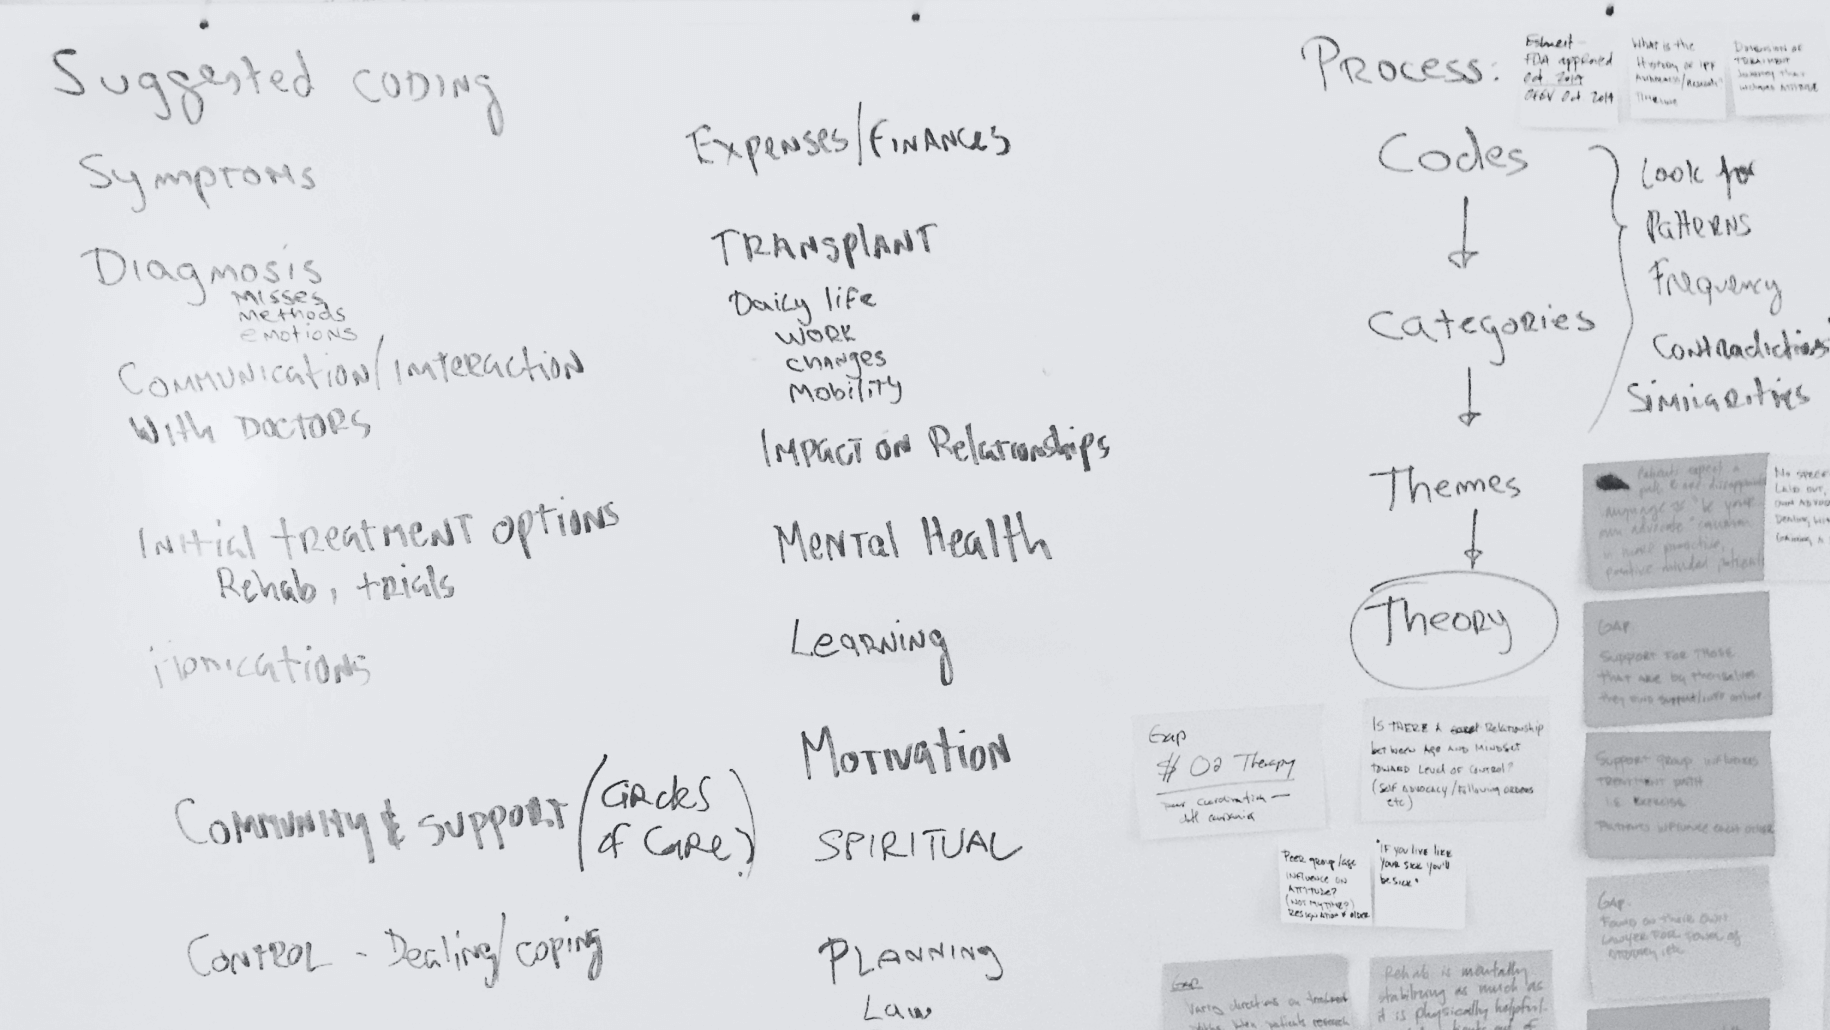 Suggested CODING
Symptoms
Diagnosis
Misses
Methods
emotions
Communication/interaction
With Doctors
Initial treatment options
Rehab, trials
Community & support (Circles
of Care)
Control - Dealing/coping
Expenses/Finances
TRANSplANT
Daily life
WORK
changes
Mobility
Impact on Relationships
Mental Health
Learning
Motivation
SPIRITUAL
PLANNING
Law
Process:
Codes
Categories
Themes
Theory
Look for
Patterns
Frequency
Contradictions
Similarities
Esbriet -
FDA approved
Oct. 2014
OFEV Oct 2014
What is the
History of IPF
Timeline
Gap
$ O2 Therapy
IS THERE A Relationship
between Age AND MINDSET
TOWARD Level of control?
(Self ADVOCACY/Following orders
etc)
Peer group/age
INFLUENCE ON
ATTITUDE?
(NOT MY TIME?)
Resignation & older
"IF YOU LIVE LIKE
YOUR SICK YOU'll
be SICK"
GAP
Support for those
that are by themselves
they find support/info online
Support group influences
treatment path
i.e. exercise
Patients influence each other
GAP.
Found on their own
Lawyer for power of
attorney, etc
Gap
Rehab is mentally
stabilizing as much as
it is physically helpful.